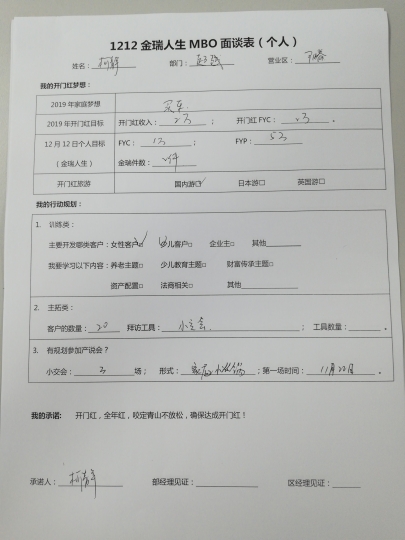 1212 金瑞人生 MBO 面谈表（个人）
姓名： 部门： 营业区：
我的开门红梦想：
2019 年家庭梦想 买车
2019 年开门红目标 开门红收入： 2万 ； 开门红 FYC： 2万 ；
12 月 12 日个人目标 FYC： 1万 ； FYP： 5万
（金瑞人生） 金瑞件数： 2件
开门红旅游 国内游□ 日本游□ 英国游□
我的行动规划：
1. 训练类：
主要开发哪类客户：女性客户□ 幼儿客户□ 企业主□ 其他
我要学习以下内容：养老主题□ 少儿教育主题□ 财富传承主题□
资产配置□ 法商相关□ 其他
2. 主拓类：
客户的数量： 20 拜访工具： 小交会 ； 工具数量： 。
3. 有规划参加产说会？
小交会： 3 场； 形式： 家庭小火锅 ；第一场时间： 11月22日 。
我的承诺: 开门红，全年红，咬定青山不放松，确保达成开门红！
承诺人： 部经理见证： 区经理见证：